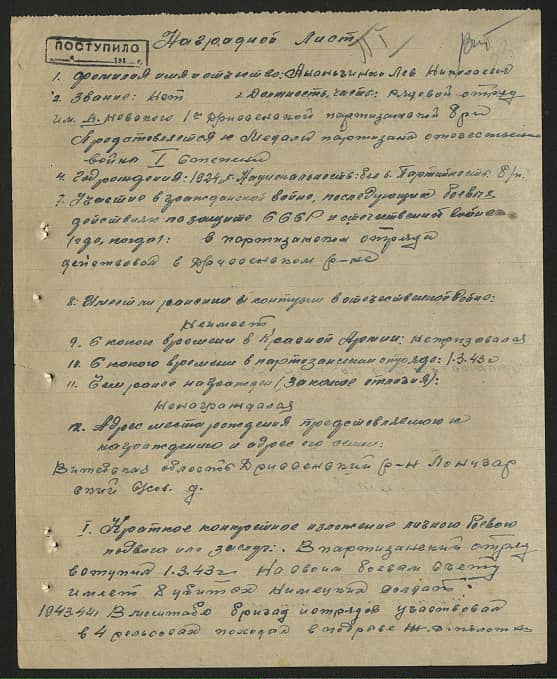 ПОСТУПИЛО
194 г.
Наградной Лист
1. Фамилия имя и отчество: Ананьчинко Лев Николаевич
2. Звание: Нет 3. Должность, часть: Рядовой отряд
им. Невского 1й Дриссенской партизанской бри
Предстовляется к Медали партизана отечественной
войны I степени
4. Год рождения: 1924 г. Национальность: Бел 6. Партийность: б/п.
7. Участие в гражданской войне, последующих боевых
действиях по защите СССР и отечественной войне
(где, когда): в партизанском отряди
действовал в Дриссенском р-не
8. Имеет ли ранения и контузии в отечественной войне:
Неимеет
9. С какого времени в Красной Армии: Непризовался
10. С какого времени в партизанском отряде: 1.3.43 г
11. Чем ранее награжден (за какие отличия):
Ненаграждался
12. Адрес места рождения представляемого к
награждению и адрес его семьи:
Витебская область Дриссенский р-н
д.
I. Краткое конкретное изложение личного боевого
подвига или заслуг: В партизанский отряд
вступил 1.3.43 г. На своим боевом счету
имеет 8 убитых Немецких солдат.
1943-44 г. В масштабе бригад и отрядов участвовал
в 4 рельсовых походах в подрыве Ж.Д. полотна